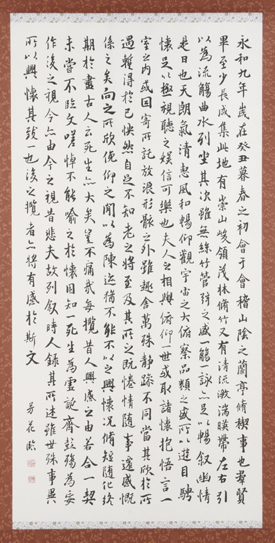 永和九年歲在癸丑暮春之初會于會稽山陰之蘭亭脩稧事也羣賢
畢至少長咸集此地有崇山峻領茂林脩竹又有清流激湍暎帶左右引
以為流觴曲水列坐其次雖無絲竹管弦之盛一觴一詠亦足以暢敘幽情
是日也天朗氣清惠風和暢仰觀宇宙之大俯察品類之盛所以遊目騁
懷足以極視聽之娛信可樂也夫人之相與俯仰一世或取諸懷抱悟言一
室之內或因寄所託放浪形骸之外雖趣舍萬殊靜躁不同當其欣於所
遇暫得於己快然自足不知老之將至及其所之既惓情隨事遷感慨
係之矣向之所欣俛仰之間以為陳迹猶不能不以之興懷況脩短隨化終
期於盡古人云死生亦大矣豈不痛哉每攬昔人興感之由若合一契
未嘗不臨文嗟悼不能喻之於懷固知一死生為虛誕齊彭殤為妄
作後之視今亦由今之視昔悲夫故列敘時人錄其所述雖世殊事異
所以興懷其致一也後之攬者亦將有感於斯文